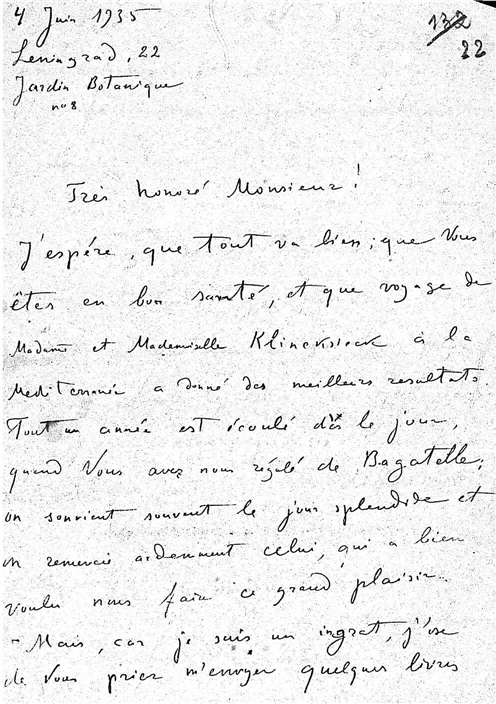 4 Juin 1935
132
22
Leningrad, 22
Jardin Botanique
no 8
Très honoré Monsieur!
J'espére, que tout va bien; que Vous
êtes en bon santé, et que voyage de
Madame et Mademiselle Klincksieck à la
Mediterranée a donné des meilleurs resultats.
Tout un année est écoulé dès le jour,
quand Vous avez nous régalé de Bagatelle;
on souvient souvent le jour splendide et
on remercie ardemment celui, qui a bien
voulu nous faire ce grand plaisir.
- Mais, car je suis un ingrat, j'ose
de Vous prier m'envoyer quelques livres